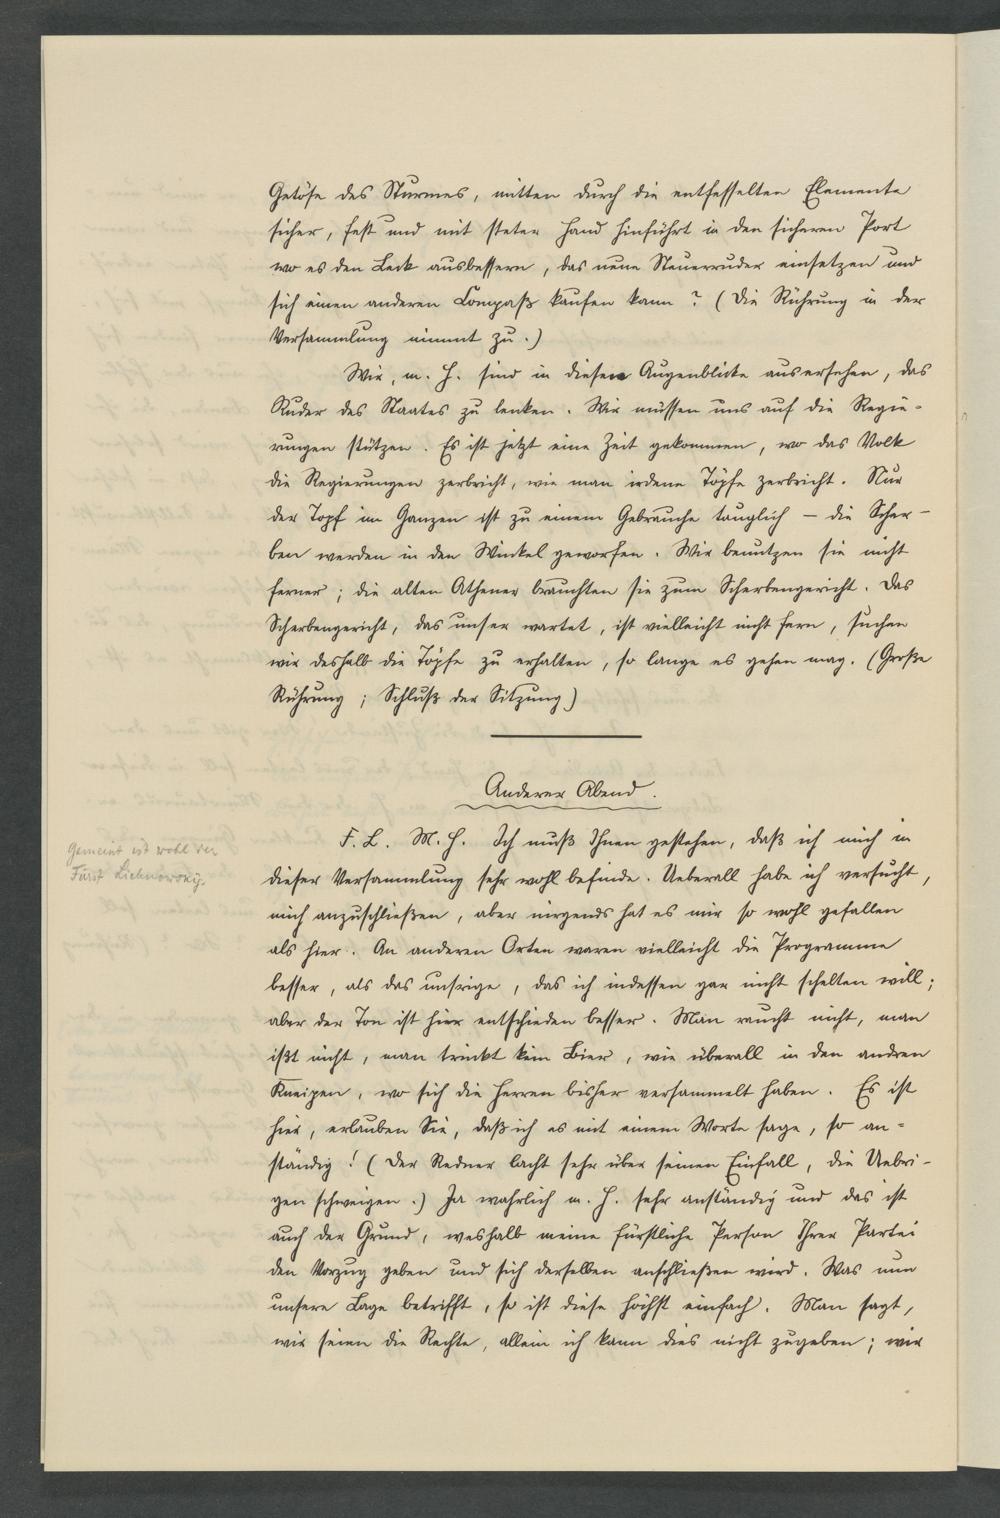 Getöse des Sturmes, mitten durch die entfesselten Elemente
sicher, fest und mit steter Hand hinführt in den sicheren Port
wo es den Leck ausbessern, das neue Steuerruder einsetzen und
sich einen anderen Compaß kaufen kann? (Die Rührung in der
Versammlung nimmt zu.)
Wir, m. H. sind in diesem Augenblicke ausersehen, das
Ruder des Staates zu lenken. Wir müssen uns auf die Regie-
rungen stützen. Es ist jetzt eine Zeit gekommen, wo das Volk
die Regierungen zerbricht, wie man irdene Töpfe zerbricht. Nur
der Topf im Ganzen ist zu einem Gebrauche tauglich – die Scher-
ben werden in den Winkel geworfen. Wir benutzen sie nicht
ferner; die alten Athener brauchten sie zum Scherbengericht. Das
Scherbengericht, das unser wartet, ist vielleicht nicht fern, suchen
wir deshalb die Töpfe zu erhalten, so lange es gehen mag. (Große
Rührung; Schluß der Sitzung)
Anderer Abend.
F. L. M. H. Ich muß Ihnen gestehen, daß ich mich in
gemeint ist wohl der
Fürst Lichnowsky.
dieser Versammlung sehr wohl befinde. Ueberall habe ich versucht,
mich anzuschließen, aber nirgends hat es mir so wohl gefallen
als hier. An anderen Orten waren vielleicht die Programme
besser, als das unsrige, das ich indessen gar nicht schelten will;
aber der Ton ist hier entschieden besser. Man raucht nicht, man
ißt nicht, man trinkt kein Bier, wie überall in den andren
Kneipen, wo sich die Herren bisher versammelt haben. Es ist
hier, erlauben Sie, daß ich es mit einem Worte sage, so an-
ständig! (Der Redner lacht sehr über seinen Einfall, die Uebri-
gen schweigen.) Ja wahrlich m. H. sehr anständig und das ist
auch der Grund, weshalb meine fürstliche Person Ihrer Partei
den Vorzug geben und sich derselben anschließen wird. Was nun
unsere Lage betrifft, so ist diese höchst einfach. Man sagt,
wir seien die Rechte, allein ich kann dies nicht zugeben; wir